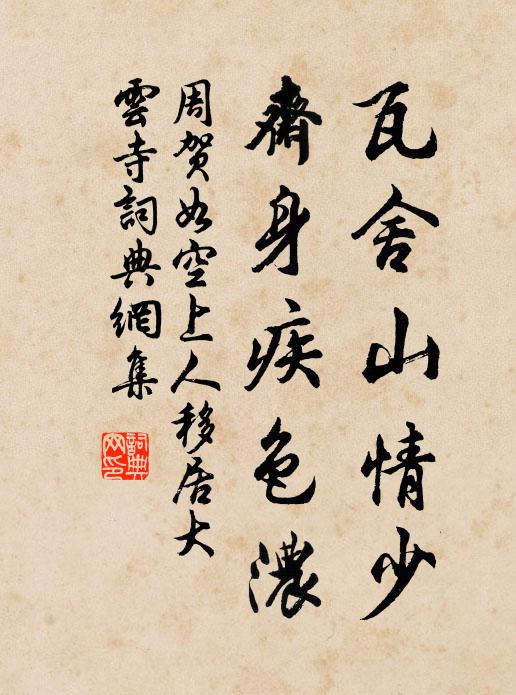 瓦舍山情少
齋身疾色濃
周賀如空上人移居大
雲寺詞典網集
詞典网印